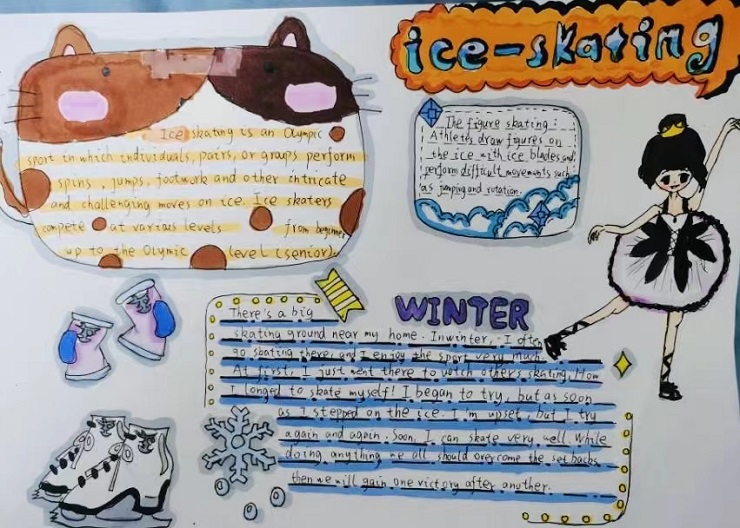 ice-skating
Ice skating is an Olympic
sport in which individuals, pairs, or graps perform
spins, jumps, footwork and other intricate
and challenging moves on ice. Ice skaters
compete at various levels from beginner
up to the Olymic level (senior).
The figure skating:
Athletes draw figures on
the ice with ice blades and
perform difficult movements such
as jumping and rotation.
WINTER
There's a big
skating ground near my home. In winter, I often
go skating there, and I enjoy the sport very much.
At first, I just went there to watch others skating. How
I longed to skate myself! I began to try, but as soon
as I stepped on the ice. I'm upset, but I try
again and again. Soon, I can skate very well. While
doing anything we all should overcome the setbacks,
then we will gain one victory after another.